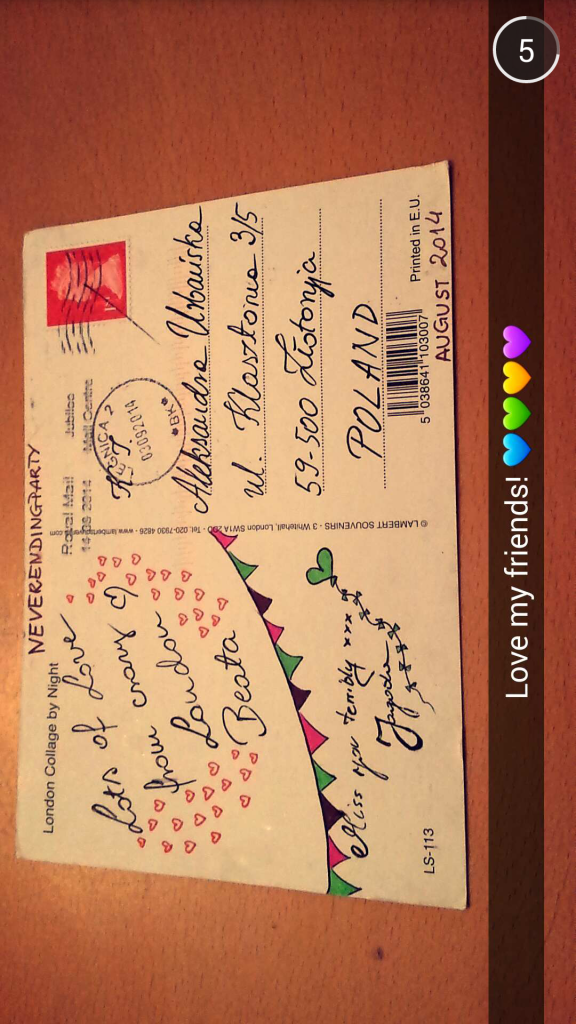 5
Love my friends! 💙💚💛💜
NEVERENDING PARTY
London Collage by Night
Lots of Love
from crazy
London
Beata
Miss you terribly xxx
Jagoda
LS-113
© LAMBERT SOUVENIRS - 3 Whitehall, London SW1A 2DD - Tel: 020-7930 4826 - www.lambertsouvenirs.com
Royal Mail
Jubilee
Mail Centre
14-08-2014
1st
03092014
*BK*
Aleksandra Urbańska
ul. Klasztorna 3/5
59-500 Złotoryja
POLAND
Printed in E.U.
5 038641 103007
AUGUST 2014